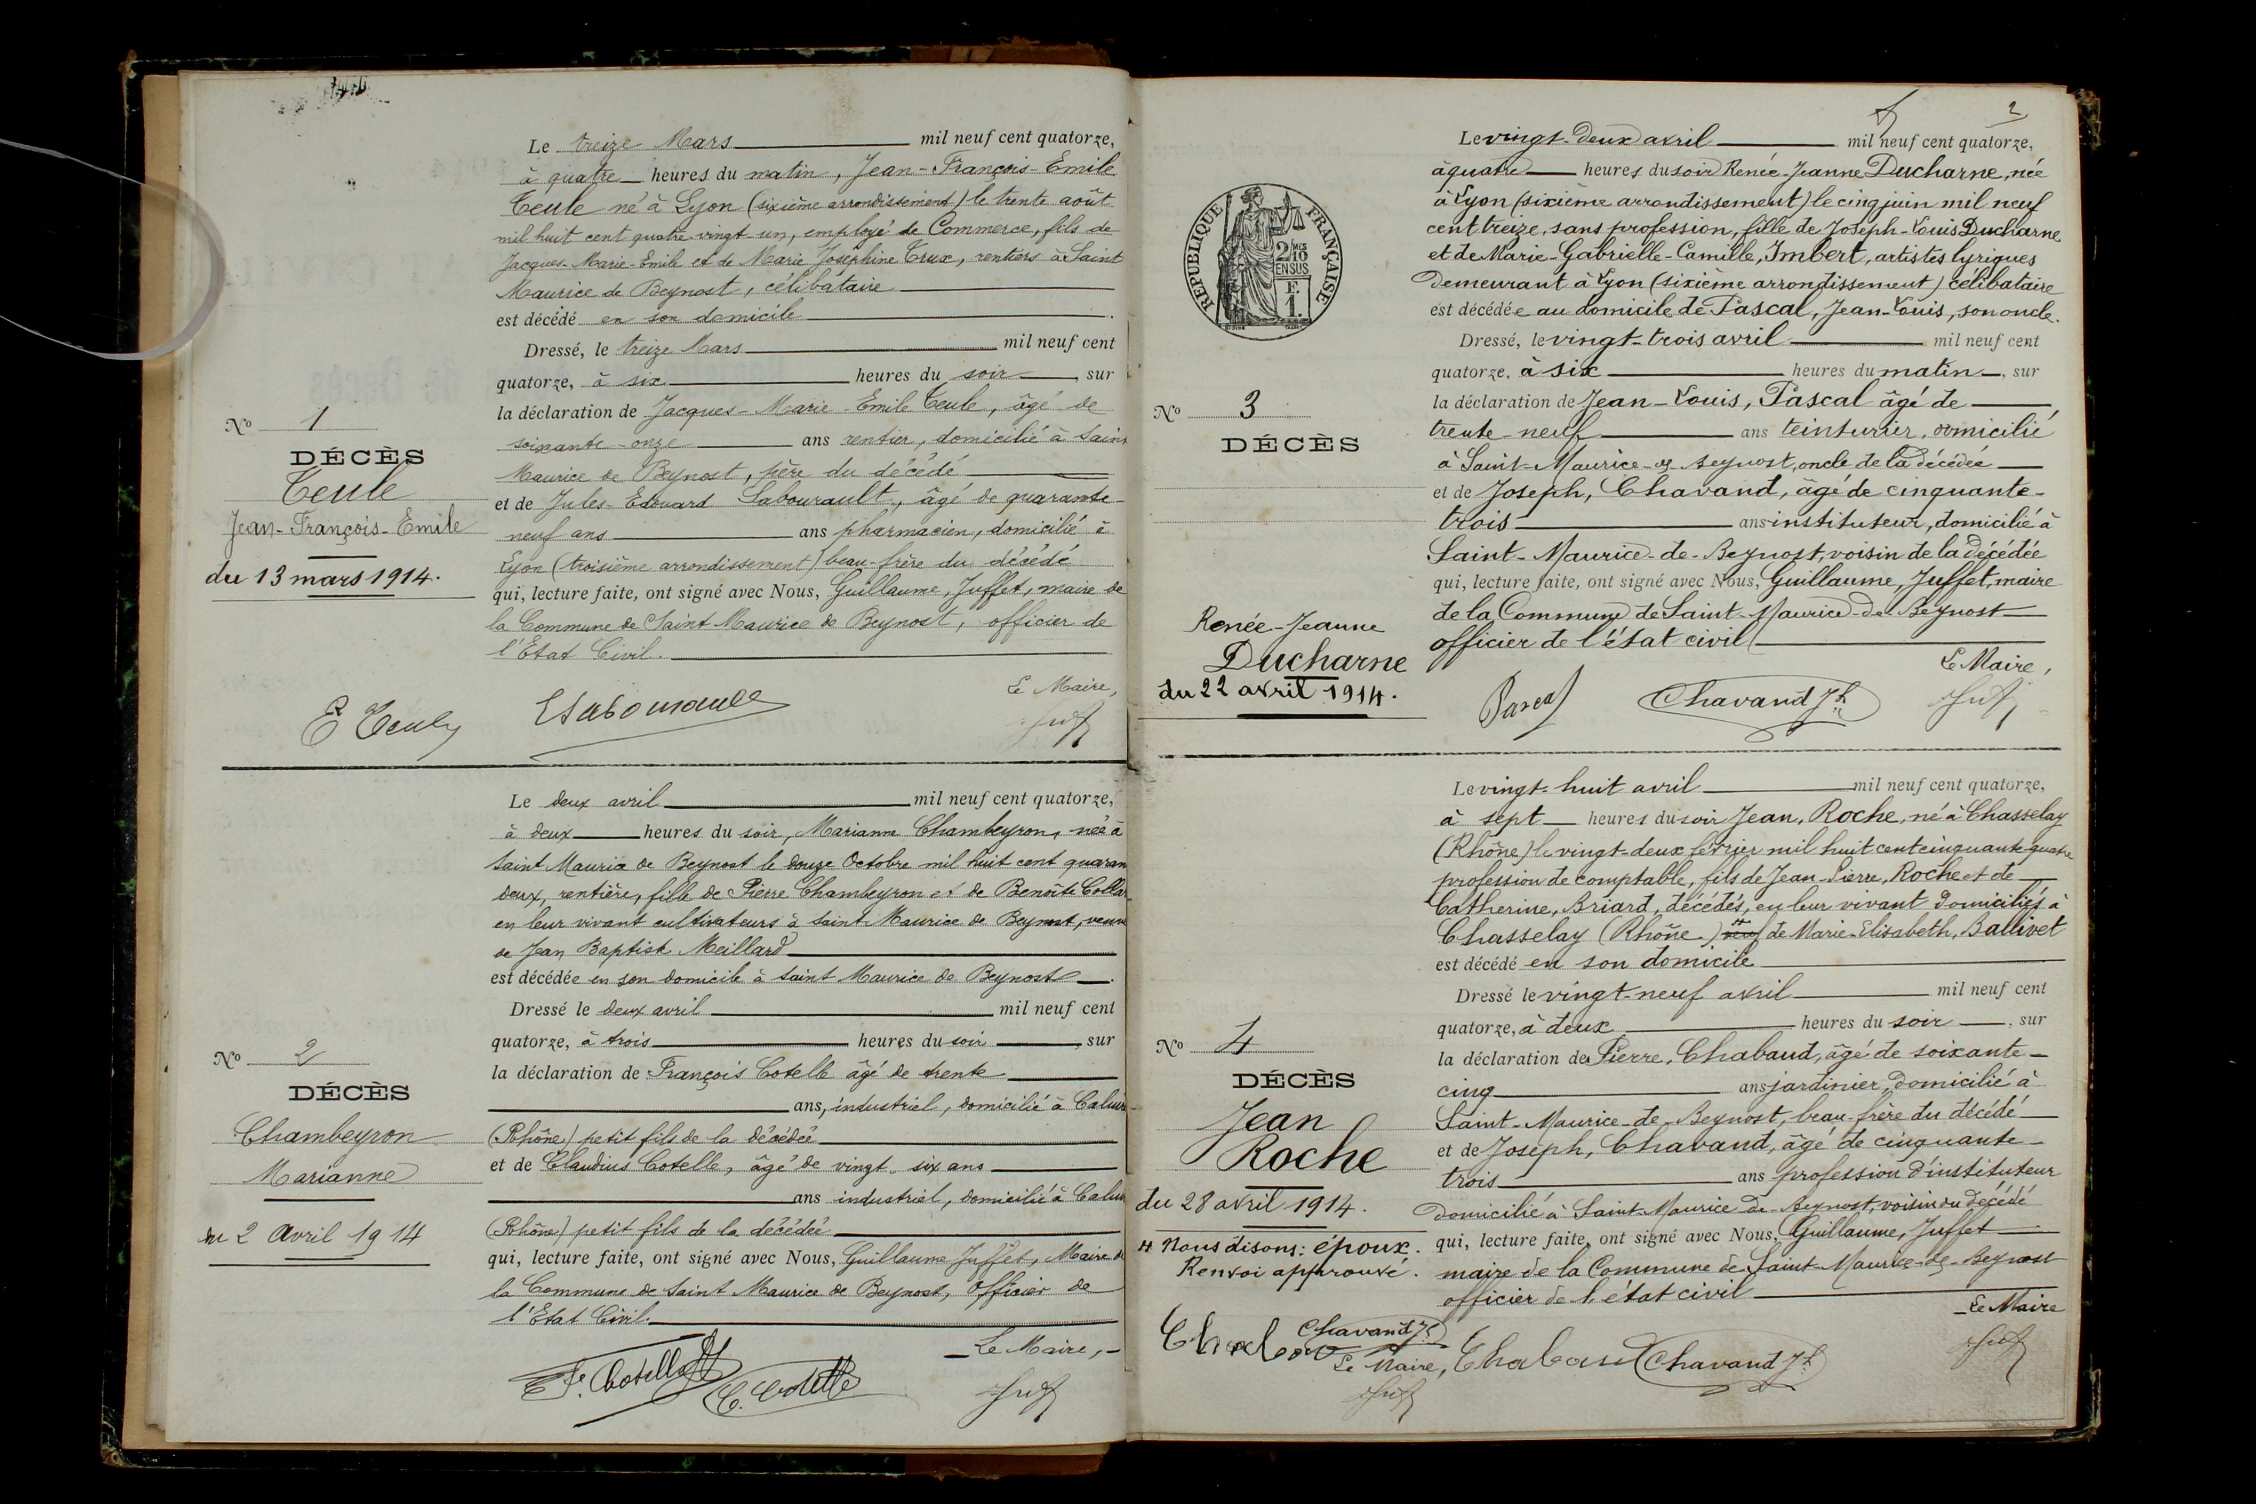 Le treize Mars mil neuf cent quatorze,
à quatre heures du matin, Jean-François-Emile
Teule né à Lyon (sixième arrondissement) le trente août
mil huit cent quatre vingt un, employé de Commerce, fils de
Jacques-Marie-Emile et de Marie Joséphine Crux, rentiers à Saint
Maurice de Beynost, célibataire
est décédé en son domicile.
Dressé, le treize Mars mil neuf cent
quatorze, à six heures du soir, sur
la déclaration de Jacques-Marie-Emile Teule, âgé de
soixante-onze ans rentier, domicilié à Saint
Maurice de Beynost, père du décédé
et de Jules-Edouard Labourault, âgé de quarante-
neuf ans ans pharmacien, domicilié à
Lyon (troisième arrondissement) beau-frère du décédé
qui, lecture faite, ont signé avec Nous, Guillaume, Juffet, maire de
la Commune de Saint Maurice de Beynost, officier de
l'Etat Civil.
Le Maire,
E Teule
Nº 1
DÉCÈS
Teule
Jean-François-Emile
du 13 mars 1914.
Le deux avril mil neuf cent quatorze,
à deux heures du soir, Marianne Chambeyron, née à
Saint Maurice de Beynost le douze Octobre mil huit cent quaran
deux, rentière, fille de Pierre Chambeyron et de Benoîte
en leur vivant cultivateurs à Saint Maurice de Beynost, veuve
de Jean Baptiste Meillard
est décédée en son domicile à Saint Maurice de Beynost.
Dressé le deux avril mil neuf cent
quatorze, à trois heures du soir, sur
la déclaration de François Cotelle âgé de trente
ans, industriel, domicilié à Caluire
(Rhône) petit fils de la décédée
et de Claudius Cotelle, âgé de vingt-six ans
ans industriel, domicilié à Caluire
(Rhône) petit fils de la décédée
qui, lecture faite, ont signé avec Nous, Guillaume Juffet, Maire de
la Commune de Saint Maurice de Beynost, officier de
l'Etat Civil.
Le Maire,
F. Cotelle C. Cotelle
Nº 2
DÉCÈS
Chambeyron
Marianne
du 2 Avril 1914
2
Le vingt-deux avril mil neuf cent quatorze,
à quatre heures du soir Renée-Jeanne Ducharne, née
à Lyon (sixième arrondissement) le cinq juin mil neuf
cent treize, sans profession, fille de Joseph-Louis Ducharne
et de Marie-Gabrielle-Camille, Imbert, artistes lyriques
demeurant à Lyon (sixième arrondissement) célibataire
est décédée au domicile de Pascal, Jean-Louis, son oncle.
Dressé, le vingt-trois avril mil neuf cent
quatorze, à six heures du matin, sur
la déclaration de Jean-Louis, Pascal âgé de
trente-neuf ans teinturier, domicilié
à Saint-Maurice-de-Beynost, oncle de la décédée
et de Joseph, Chavand, âgé de cinquante-
trois ans instituteur, domicilié à
Saint-Maurice-de-Beynost, voisin de la décédée
qui, lecture faite, ont signé avec Nous, Guillaume, Juffet, maire
de la Commune de Saint-Maurice-de-Beynost
officier de l'état civil
Le Maire,
Pascal Chavand Jh
RÉPUBLIQUE FRANÇAISE
2/10 MES
EN SUS
F.
1.
Nº 3
DÉCÈS
Renée-Jeanne
Ducharne
du 22 avril 1914.
Le vingt-huit avril mil neuf cent quatorze,
à sept heures du soir Jean, Roche, né à Chasselay
(Rhône) le vingt-deux février mil huit cent cinquante-quatre
profession de comptable, fils de Jean-Pierre, Roche et de
Catherine, Briard, décédés, en leur vivant domiciliés à
Chasselay (Rhône) de Marie-Elisabeth, Ballivet
est décédé en son domicile
Dressé le vingt-neuf avril mil neuf cent
quatorze, à deux heures du soir, sur
la déclaration de Pierre, Chabaud, âgé de soixante-
cinq ans jardinier, domicilié à
Saint-Maurice-de-Beynost, beau-frère du décédé
et de Joseph, Chavand, âgé de cinquante-
trois ans profession d'instituteur
domicilié à Saint-Maurice-de-Beynost, voisin du décédé
qui, lecture faite, ont signé avec Nous, Guillaume, Juffet
maire de la Commune de Saint-Maurice-de-Beynost
officier de l'état civil
Le Maire
Chabaud Chavand Jh
Nº 4
DÉCÈS
Jean
Roche
du 28 avril 1914.
Nous disons: époux.
Renvoi approuvé.
Chavand Jh
Le Maire,